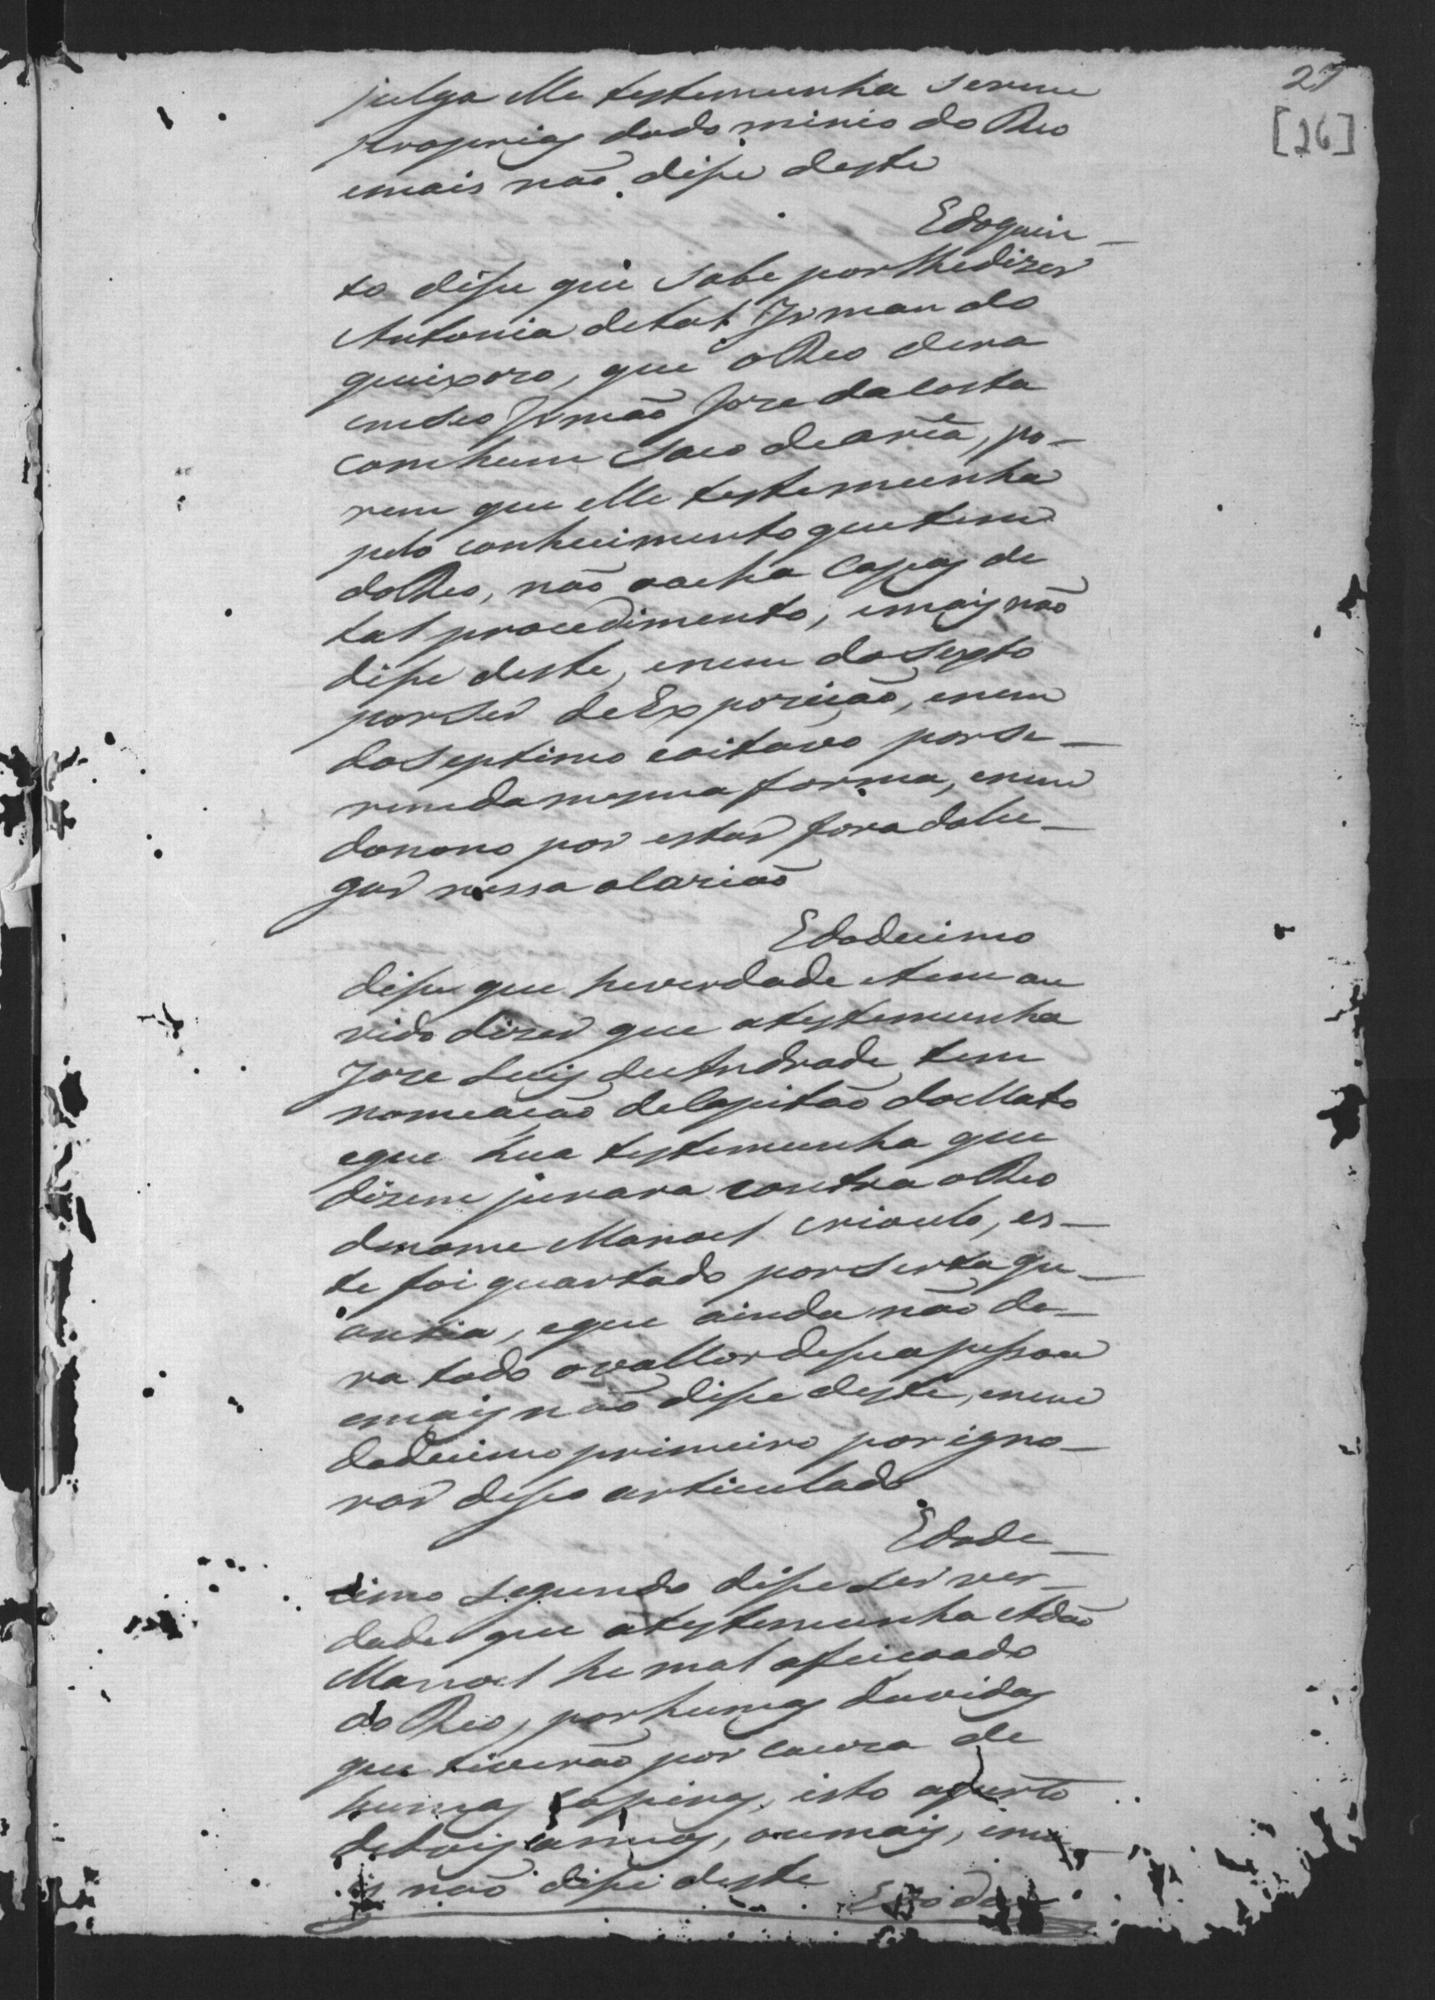 27
[26]
julga elle testemunha serem
proprias dodo minio do Reo
emais não dise deste
Edoquin_
to dise que sabe porlhedizer
Antonia detal Irman do
queixozo, que oReo dera
emseo Irmão Joze daCosta
comhum saco dearêa, po_
rem que elle testemunha
pelo conhecimento quetem
doReo, não oacha Capas de
tal procedimento, emais não
dise deste, enem dosexto
porser deExpozicão, enem
doseptimo eoitavo porse_
remdamesma forma, enem
donono por estar foradolu_
gar nessa ocazião
Edodecimo
dise que heverdade etem ou
vido dizer que atestemunha
Joze Luis deAndrade tem
nomeacão deCapitão doMato
eque hua testemunha que
dizem jurara contra oReo
denome Manoel crioulo, es_
te foi quartado porserta qu_
antia, eque ainda não de_
ra todo ovallor desuapessoa
emais não dise deste, enem
dodecimo primeiro porigno_
rar deseo articulado
Edode_
cimo segundo dise ser ver_
dade que atestemunha Adão
Manoel he mal afeicoado
do Reo, porhumas duvidas
que tiverão por cauza de
humas, isto aperto
dedois annos, oumais, ema
is não dise deste